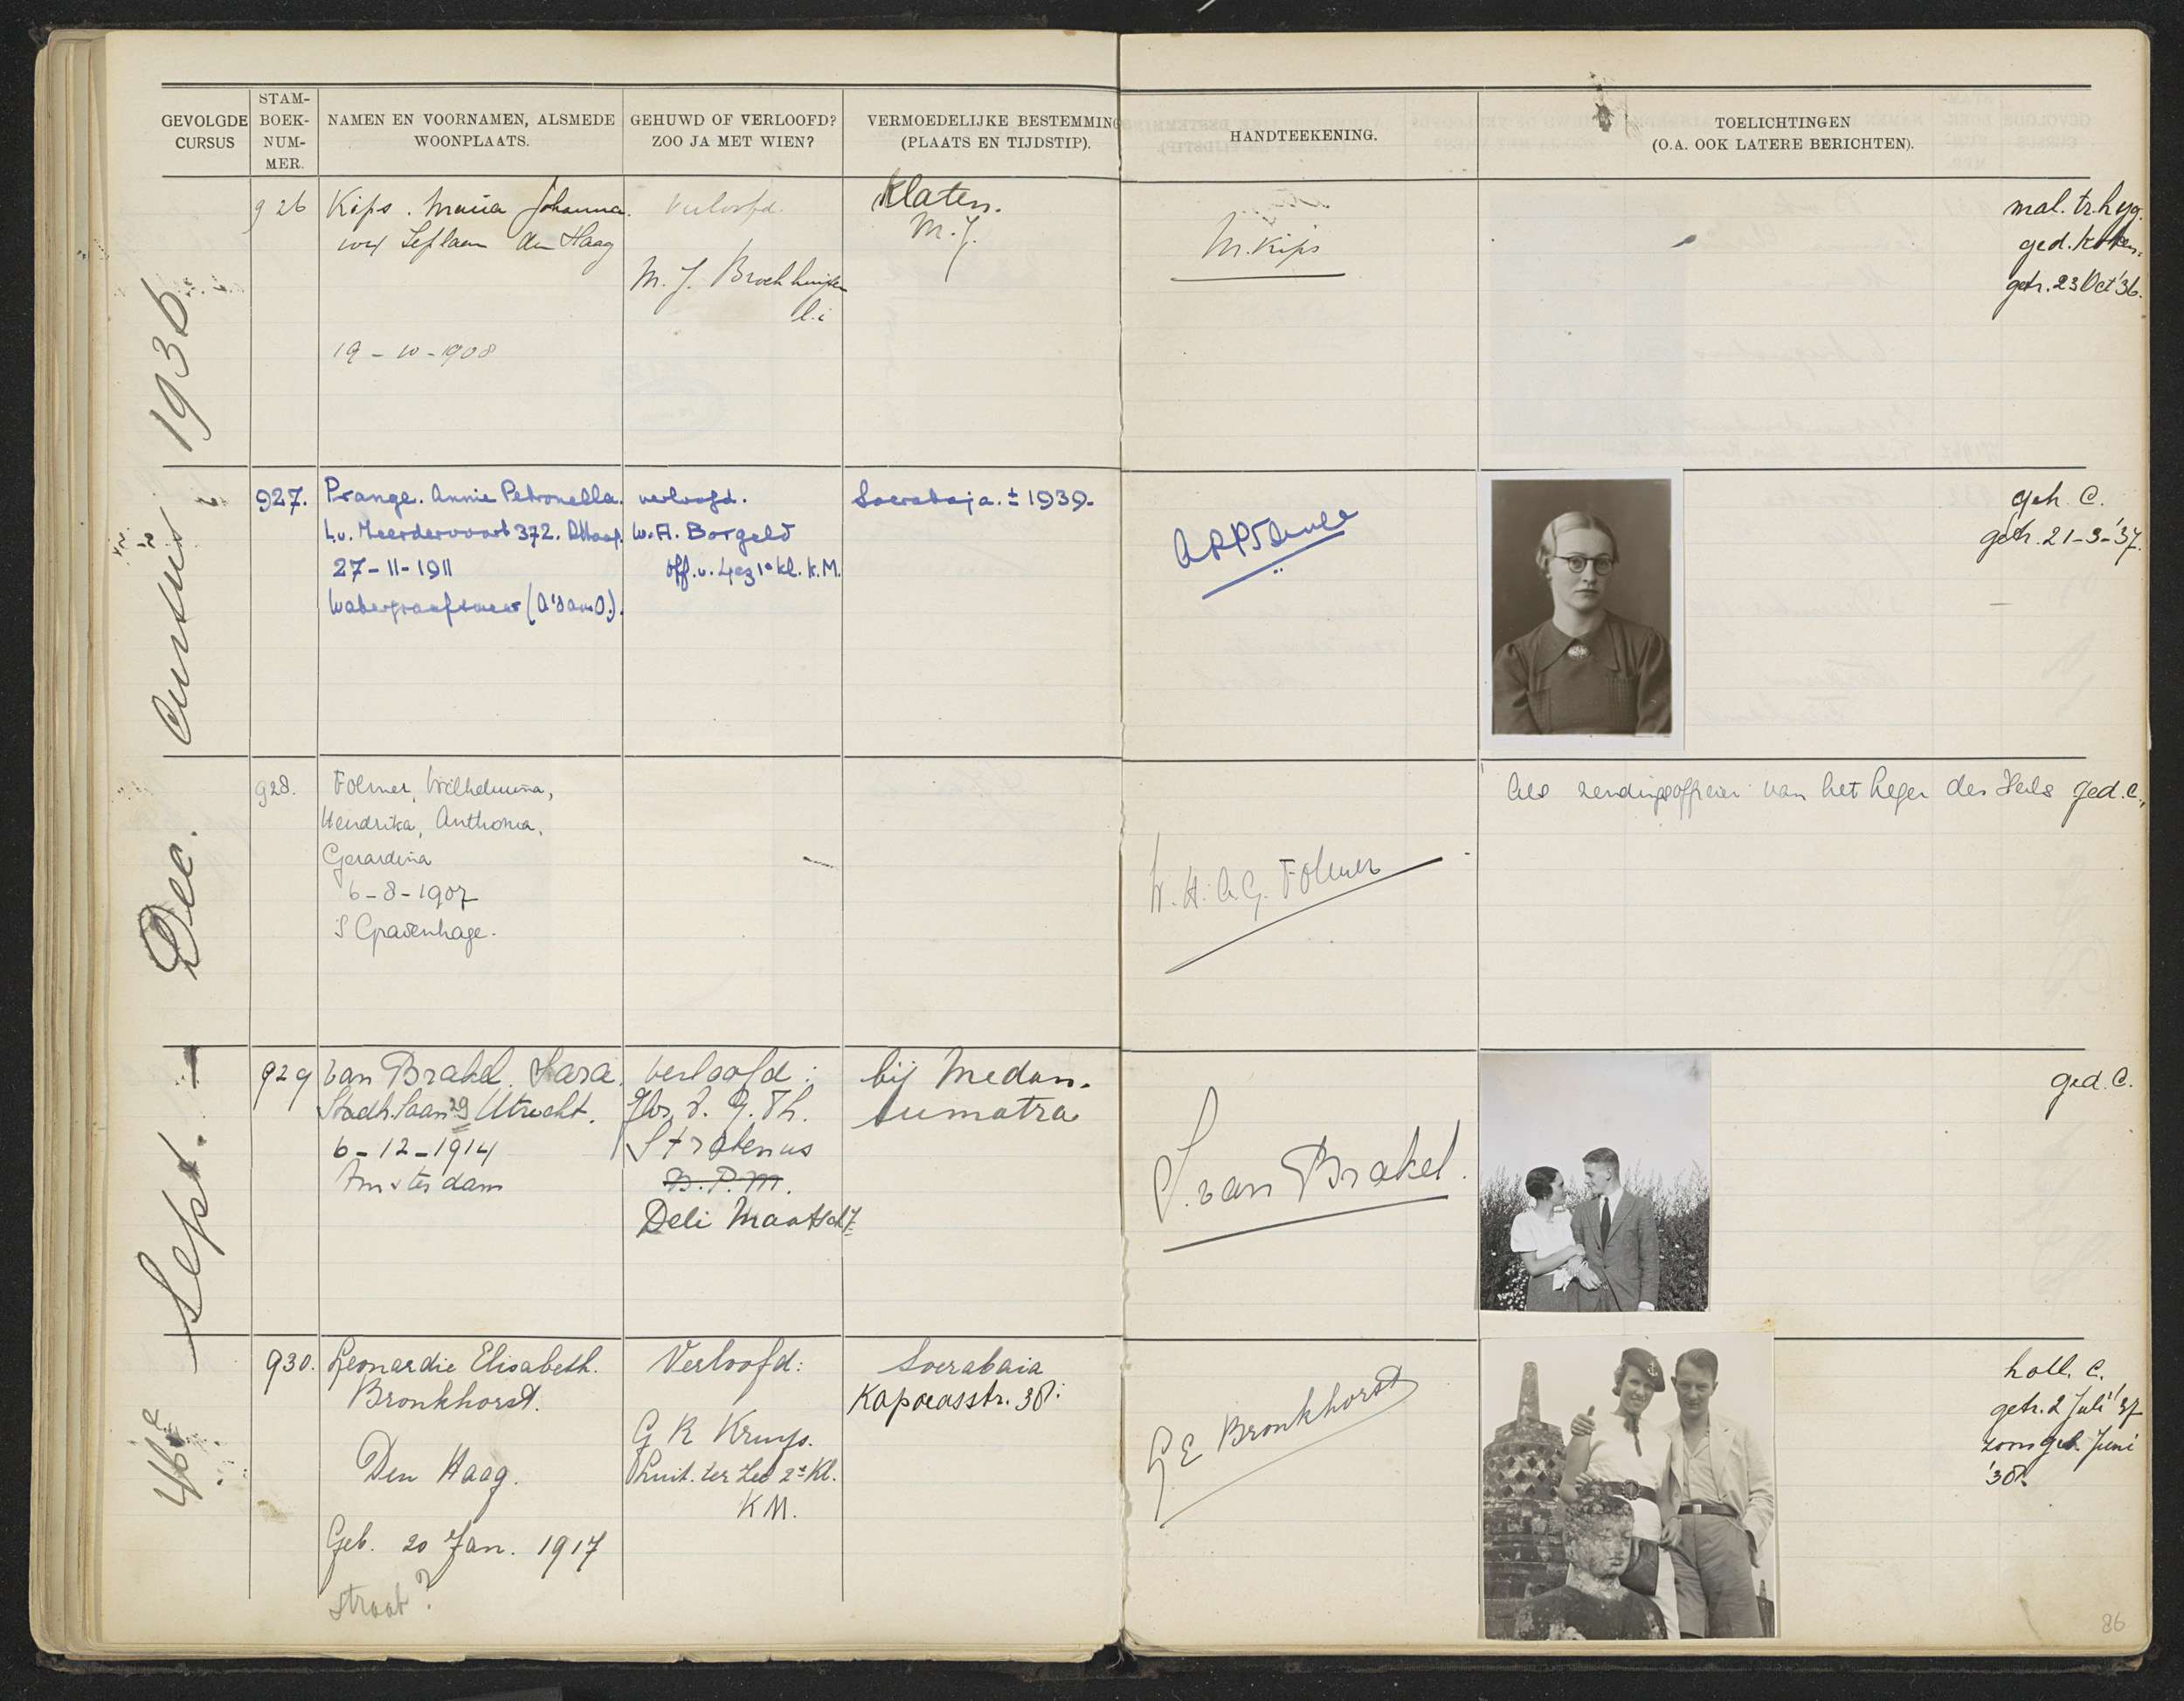 GEVOLGDE CURSUS
STAM-BOEK-NUM-MER.
NAMEN EN VOORNAMEN, ALSMEDE WOONPLAATS.
GEHUWD OF VERLOOFD? ZOO JA MET WIEN?
VERMOEDELIJKE BESTEMMING (PLAATS EN TIJDSTIP).
HANDTEEKENING.
TOELICHTINGEN (O.A. OOK LATERE BERICHTEN).
46e Sept. - Dec. Cursus 1936
926
Kips. Maria Johanna.
Den Haag
19-10-1908
Verloofd.
M. J. Broekhuijsen
l.i
Klaten.
M.J.
M. Kips
mal. tr. hyg.
ged. koken.
getr. 23 Oct '36.
927.
Prange. Annie Petronella.
L.v. Meerdervoort 372. DHaag.
27-11-1911
Watergraafsmeer (A'dam O.).
verloofd.
W.A. Borgeld
off. v. gez 1e kl. K.M.
Soerabaja. ± 1939.
APPrange
geh. C.
getr. 21-3-'37.
928.
Folmer, Wilhelmina,
Hendrika, Anthonia,
Gerardina
6-8-1907
S Gravenhage.
—
W.H.A.G. Folmer
Als zendingsofficier van het Leger des Heils ged. C.,
929
van Brakel. Sara.
Stadh. laan 29 Utrecht.
6-12-1914
Amsterdam
verloofd:
J. Th.
Stratenus
B.P.M.
Deli Maatschij
bij Medan.
Sumatra
S. van Brakel.
ged. C.
930.
Leonardie Elisabeth.
Bronkhorst.
Den Haag.
Geb. 20 Jan. 1917
straat?
Verloofd:
G R Kruys.
Luit. ter Zee 2e Kl.
KM.
Soerabaia
Kapoeasstr. 38:
L E Bronkhorst
holl. C.
getr. 2 Juli '37
zoon geb. Juni
'38.
86